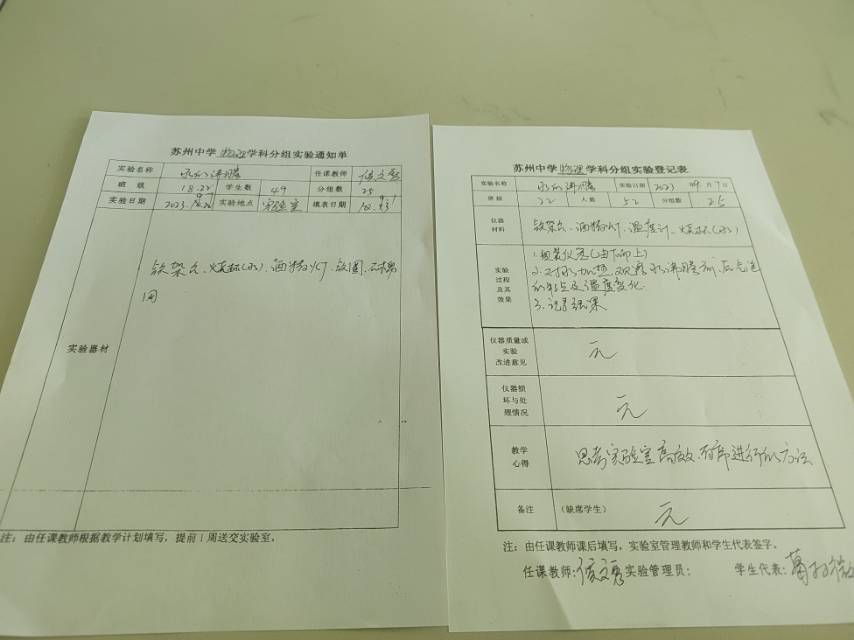 苏州中学 物理 学科分组实验通知单
实验名称 水的沸腾 任课教师
班 级 18.22 学生数 49 分组数 25
实验日期 2023. 实验地点 实验室 填表日期
实验器材
铁架台、烧杯(水)、酒精灯、铁圈、石棉
网
注：由任课教师根据教学计划填写，提前1周送交实验室。
苏州中学 物理 学科分组实验登记表
实验名称 水的沸腾 实验日期 2023 年9月7日
班级 22 人数 52 分组数 25
仪器
材料
铁架台、酒精灯、温度计、烧杯(水)
实验
过程
及其
效果
1.组装仪器(由下而上)
2.对水加热,观察水沸腾前、后气泡
的特点及温度变化.
3.记录结果
仪器质量或
实验
改进意见
无
仪器损
坏与处
理情况
无
教学
心得
思考实验室高效、有序进行的方法
备注 (缺席学生) 无
注：由任课教师课后填写，实验室管理教师和学生代表签字。
任课教师: 实验管理员: 学生代表: